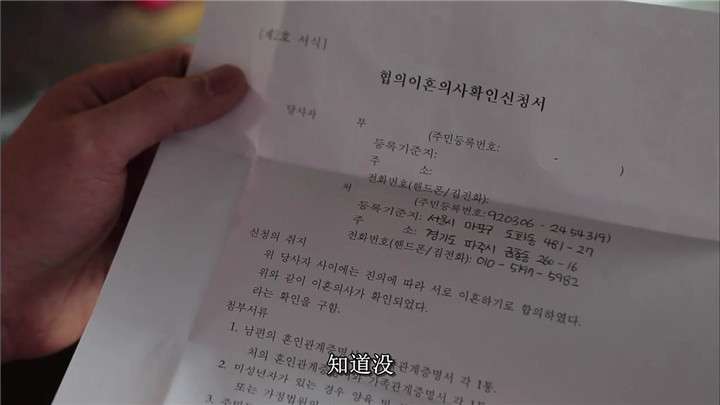 [제2호 서식]
협의이혼의사확인신청서
당사자 부 (주민등록번호: - )
등록기준지:
주 소:
전화번호(핸드폰/집전화):
처 (주민등록번호: 920306 - 2454319)
등록기준지: 서울시 마포구 도화동 481-27
주 소: 경기도 파주시 금촌동 260-16
전화번호(핸드폰/집전화): 010-5197-5982
신청의 취지
위 당사자 사이에는 진의에 따라 서로 이혼하기로 합의하였다.
위와 같이 이혼의사가 확인되었다.
라는 확인을 구함.
첨부서류
1. 남편의 혼인관계증명서 가족관계증명서 각 1통.
처의 혼인관계증명서와 가족관계증명서 각 1통.
2. 미성년자가 있는 경우 양육 및
또는 가정법원의
3. 주민
知道没